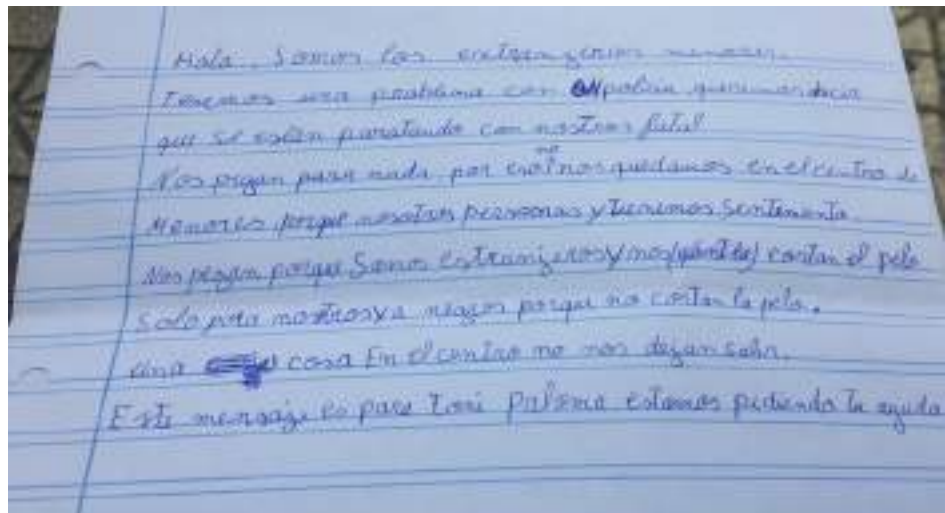 Hola. Somos los extrangeros menores.
Tenemos una problema con policia
que se estan portando con nostros fatal
Nos pegan para nada, por eso no nos quedamos en el centro de
Menores porque nosotros personas y tenemos Sentemento
Nos pegan porque Somos estranjeros y nos cortan el pelo
Solo para nostros y a negros porque no cortan la pelo.
una cosa En el centro no nos dejan Salir.
Este mensaje es para Toni Paloma estamos pediendo tu ayuda